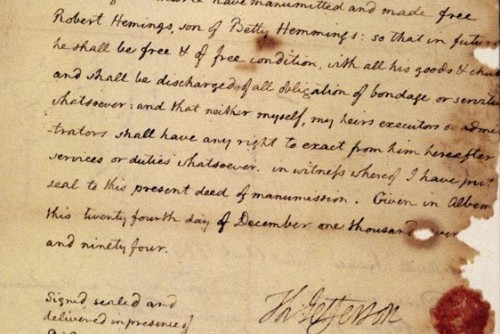 have manumitted and made free
Robert Hemings, son of Betty Hemmings: so that in future
he shall be free & of free condition, with all his goods &
and shall be discharged of all obligation of bondage or
whatsoever: and that neither myself, my heirs executors or
trators shall have any right to exact from him hereafter
services or duties whatsoever. in witness whereof I have put
seal to this present deed of manumission. Given in
this twenty fourth day of December one thousand
and ninety four.
Signed sealed and
delivered in presence of
Th Jefferson